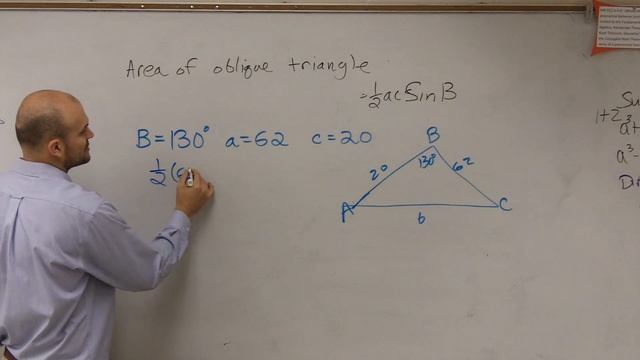 Area of oblique triangle
= 1/2 ac Sin B
B = 130° a = 62 c = 20
1/2 (6
B
130°
20
62
A
C
b
Su
1+2
a³